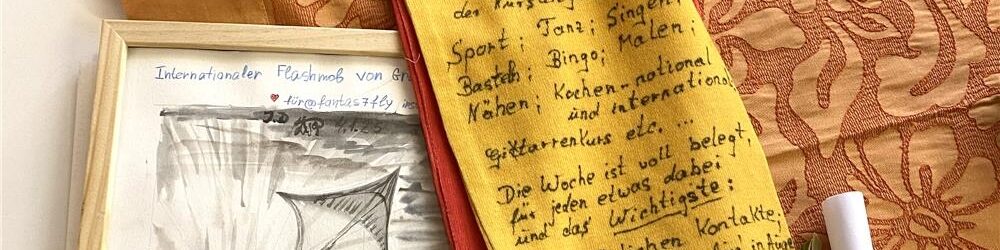 Internationaler Flashmob von
für @fantas7fly
4.1.25
der
Sport; Tanz; Singen;
Basteln; Bingo; Malen;
Nähen; Kochen-national
und international,
gittarrenkurs etc. ...
Die Woche ist voll belegt,
für jeden etwas dabei
und das Wichtigste:
Kontakte;